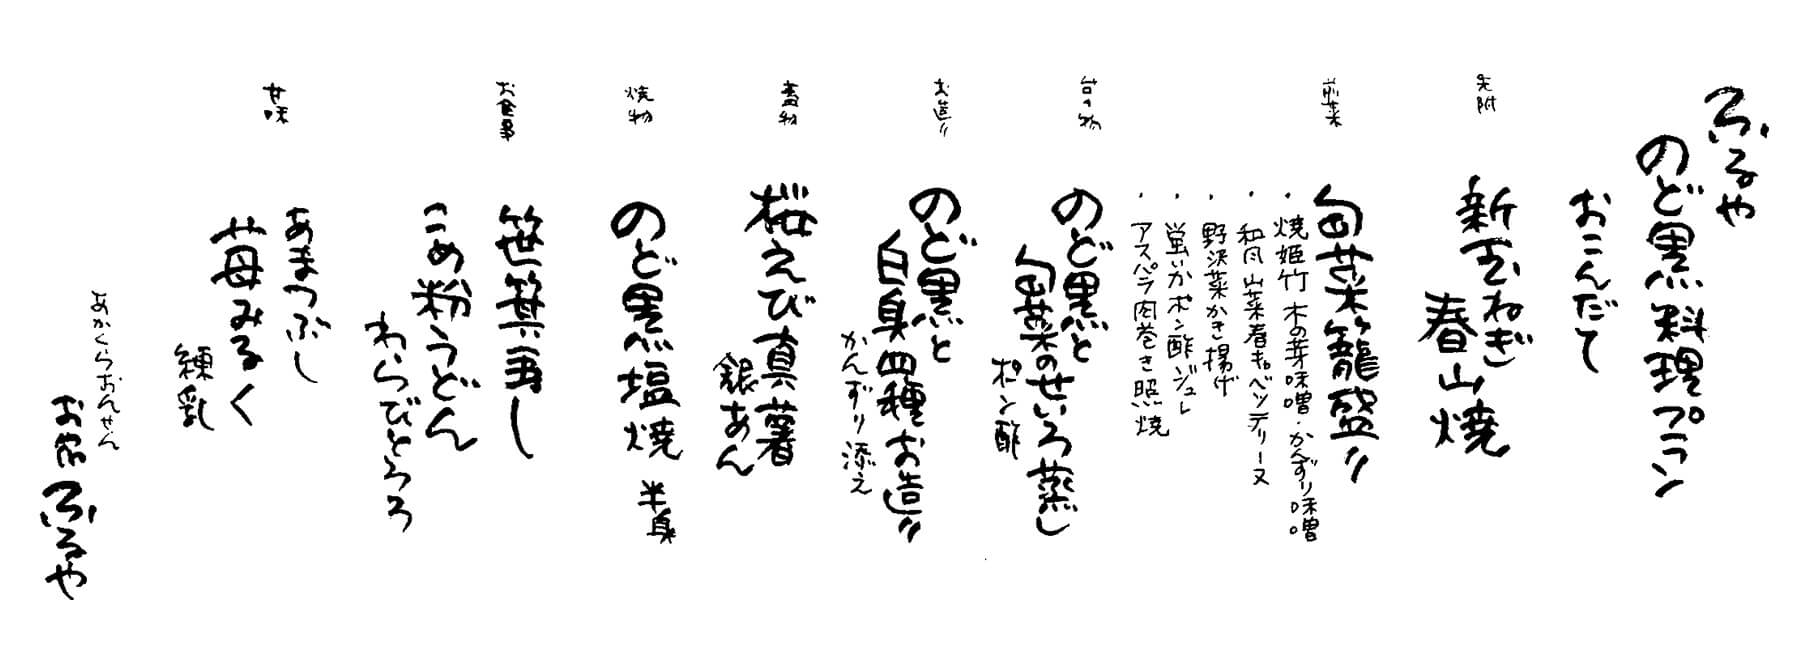 ふるや
のど黒料理プラン
おこんだて
先附
新玉ねぎ
春山焼
前菜
旬菜籠盛り
・焼姫竹 木の芽味噌・かんずり味噌
・和風山菜春キャベツテリーヌ
・野沢菜かき揚げ
・蛍いかポン酢ジュレ
・アスパラ肉巻き照焼
台の物
のど黒と
旬菜のせいろ蒸し
ポン酢
お造り
のど黒と
白身四種お造り
かんずり添え
蓋物
桜えび真薯
銀あん
焼物
のど黒塩焼 半身
お食事
笹箕寿し
こめ粉うどん
わらびとろろ
甘味
あまつぶし
苺みるく
練乳
あかくらおんせん
お宿ふるや